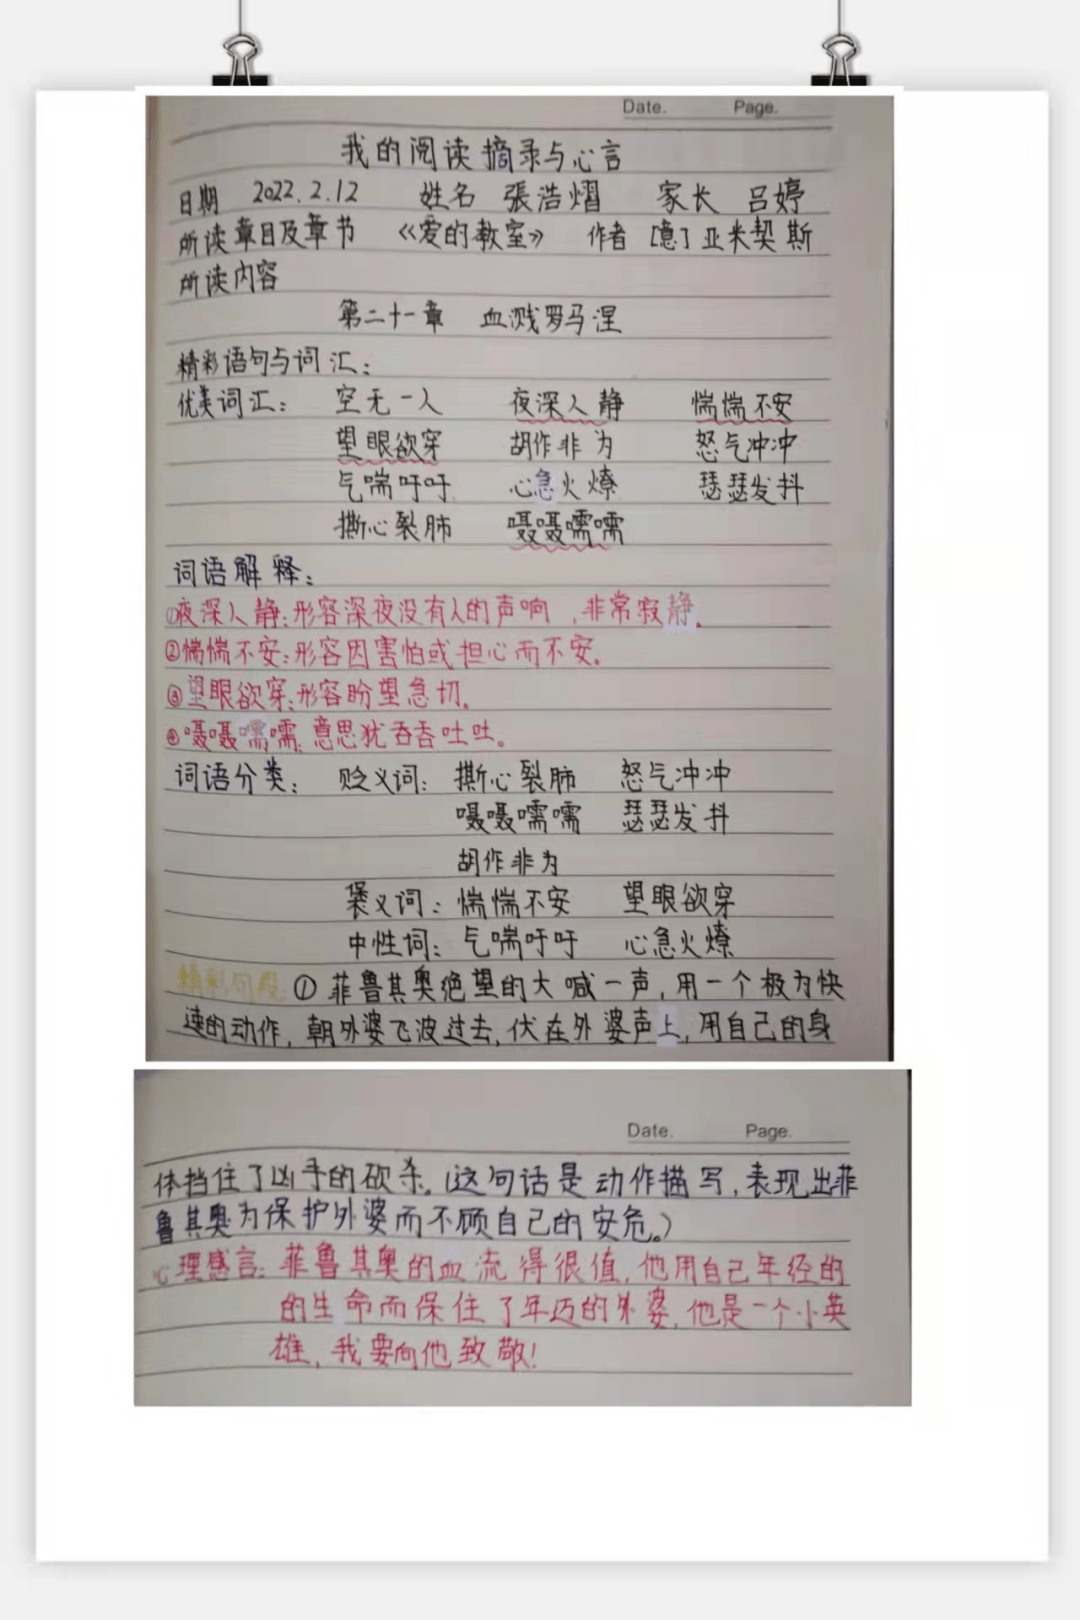 Date. Page.
我的阅读摘录与心言
日期 2022.2.12 姓名 張浩熠 家长 吕婷
所读章目及章节 《爱的教室》 作者 [意] 亚米契斯
所读内容
第二十一章 血溅罗马涅
精彩语句与词汇：
优美词汇： 空无一人 夜深人静 惴惴不安
望眼欲穿 胡作非为 怒气冲冲
气喘吁吁 心急火燎 瑟瑟发抖
撕心裂肺 嗫嗫嚅嚅
词语解释：
①夜深人静：形容深夜没有人的声响，非常寂静。
②惴惴不安：形容因害怕或担心而不安。
③望眼欲穿：形容盼望急切。
④嗫嗫嚅嚅：意思犹吞吞吐吐。
词语分类： 贬义词： 撕心裂肺 怒气冲冲
嗫嗫嚅嚅 瑟瑟发抖
胡作非为
褒义词： 惴惴不安 望眼欲穿
中性词： 气喘吁吁 心急火燎
精彩句段 ① 菲鲁其奥绝望的大喊一声，用一个极为快
速的动作，朝外婆飞波过去，伏在外婆声上，用自己的身
Date. Page.
体挡住了凶手的砍杀。（这句话是动作描写，表现出菲
鲁其奥为保护外婆而不顾自己的安危。）
心理感言：菲鲁其奥的血流得很值，他用自己年经的
的生命而保住了年迈的外婆，他是一个小英
雄，我要向他致敬！